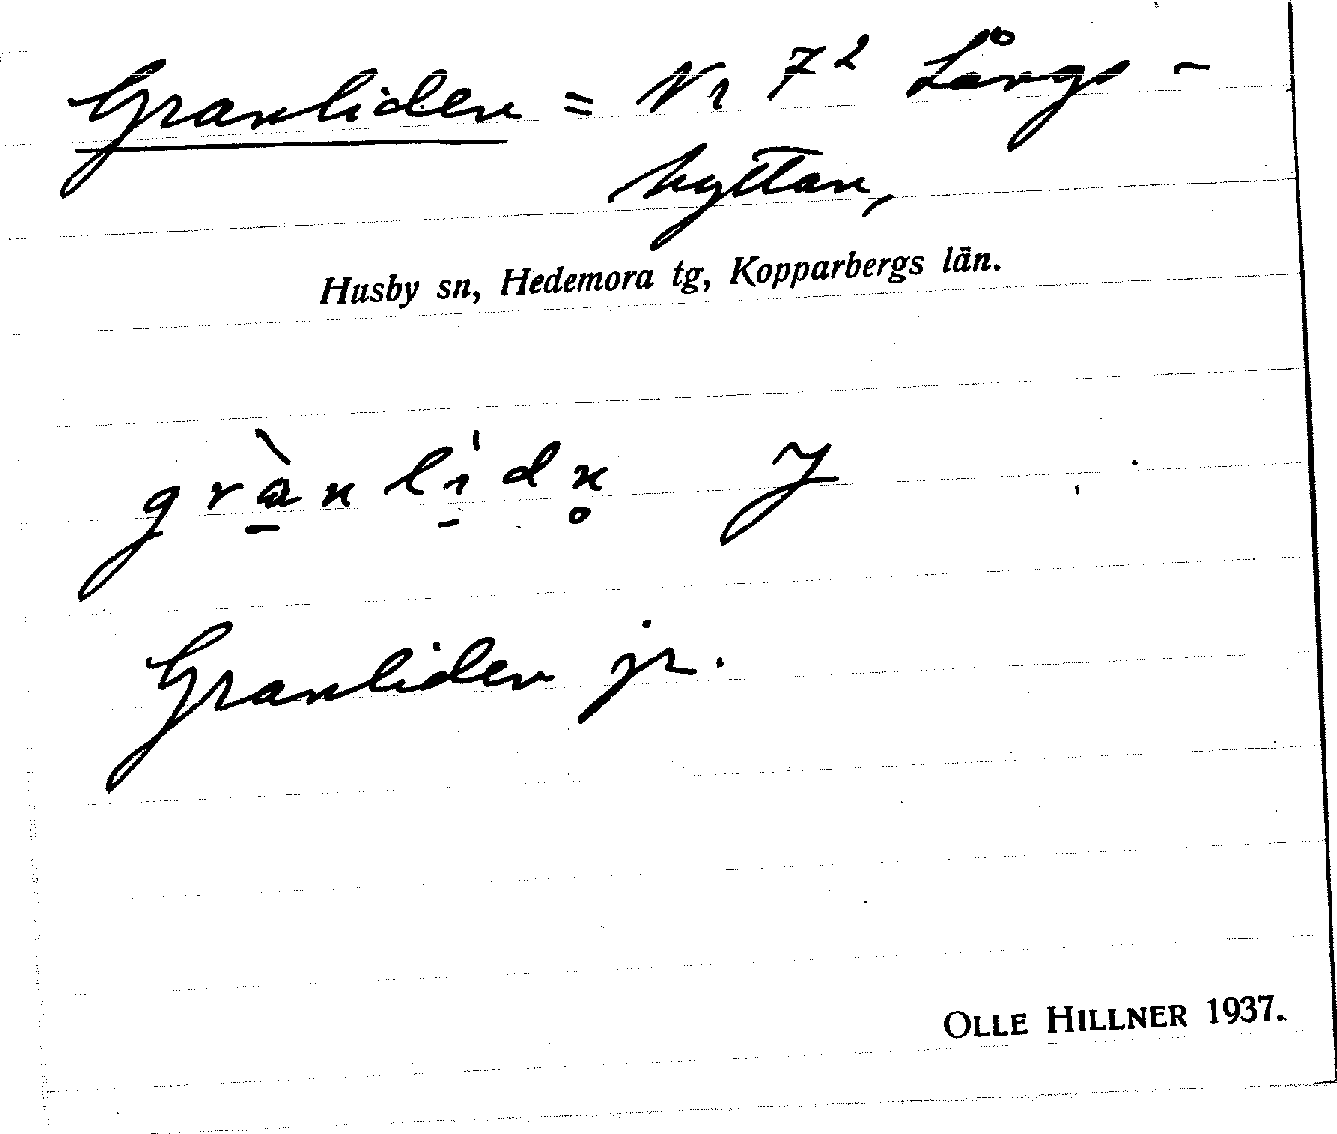 Granliden = Nr 7² Långs-
hyttan,
Husby sn, Hedemora tg, Kopparbergs län.
grànlidn̥ J
Granliden jr.
OLLE HILLNER 1937.